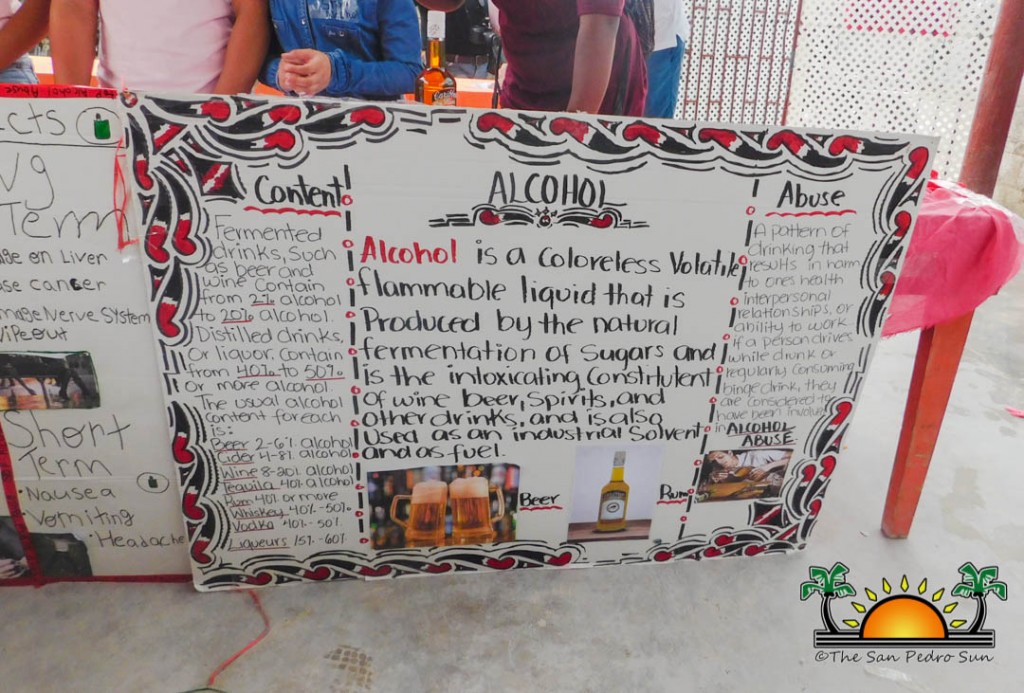 cts
g
Term
on Liver
cancer
Nerve System
Wipeout
Short
Term
Nausea
Vomiting
Headache
Content
Fermented
drinks, Such
as beer and
wine Contain
from 2% alcohol
to 20% alcohol.
Distilled drinks,
Or liquor. Contain
from 40% to 50%
or more alcohol.
The usual alcohol
Content for each
is:
Beer 2-6% alcohol
Cider 4-8% alcohol
Wine 8-20% alcohol
Tequila 40% alcohol
Rum 40% or more
Whiskey 40%-50%
Vodka 40%-50%
Liqueurs 15%-60%
ALCOHOL
Alcohol is a coloreless Volatile
flammable liquid that is
Produced by the natural
fermentation of Sugars and
is the intoxicating Constituent
of wine beer, Spirits, and
other drinks, and is also
Used as an industrial Solvent
and as fuel.
Beer
Rum
Abuse
A pattern of
drinking that
results in harm
to ones health
interpersonal
relationships, or
ability to work
if a person drives
while drunk or
regularly consuming
binge drink, they
are considered to
have been involve
in ALCOHOL
ABUSE.
©The San Pedro Sun